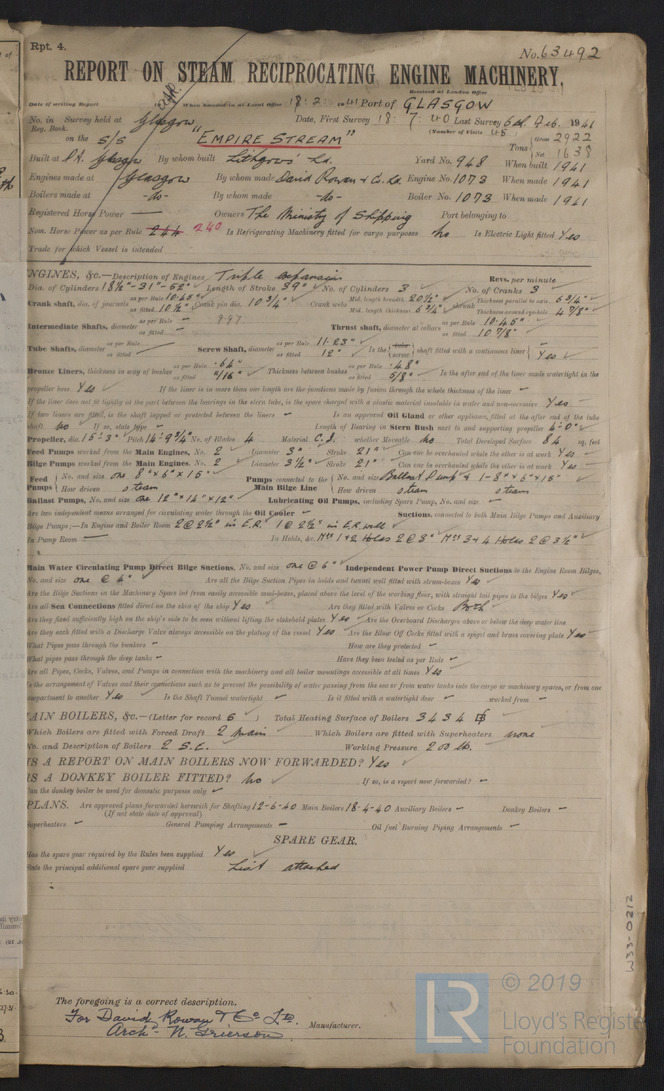 Rpt. 4.
No. 63492
REPORT ON STEAM RECIPROCATING ENGINE MACHINERY.
Received at London Office
Date of writing Report When handed in at Local Office 18. 2. 1941 Port of GLASGOW
No. in Survey held at Glasgow Date, First Survey 18 7 40 Last Survey 6th Feb. 1941
Reg. Book. (Number of Visits 45
on the S/S "EMPIRE STREAM" Tons { Gross 2922
Net 1638
Built at Pt. Glasgow By whom built Lithgows Ld. Yard No. 948 When built 1941
Engines made at Glasgow By whom made David Rowan & Co. Ld. Engine No. 1073 When made 1941
Boilers made at -do- By whom made -do- Boiler No. 1073 When made 1941
Registered Horse Power — Owners The Ministry of Shipping Port belonging to
Nom. Horse Power as per Rule 244 240 Is Refrigerating Machinery fitted for cargo purposes No Is Electric Light fitted Yes
Trade for which Vessel is intended
ENGINES, &c.—Description of Engines Triple expansion Revs. per minute
Dia. of Cylinders 18½"-31"-52" Length of Stroke 39" No. of Cylinders 3 No. of Cranks 3
Crank shaft, dia. of journals as per Rule 10.45" as fitted 10½" Crank pin dia. 10¾" Crank webs Mid. length breadth 20½" Mid. length thickness 6¾" shrunk Thickness parallel to axis 6¾" Thickness around eye-hole 4⅞"
Intermediate Shafts, diameter as per Rule — as fitted — Thrust shaft, diameter at collars as per Rule 10.45" as fitted 10⅞"
Tube Shafts, diameter as per Rule — as fitted — Screw Shaft, diameter as per Rule 11.23" as fitted 12" Is the { tube screw } shaft fitted with a continuous liner { Yes
Bronze Liners, thickness in way of bushes as per Rule .64" as fitted 11/16" Thickness between bushes as per Rule .48" as fitted 5/8" Is the after end of the liner made watertight in the
propeller boss Yes If the liner is in more than one length are the junctions made by fusion through the whole thickness of the liner —
If the liner does not fit tightly at the part between the bearings in the stern tube, is the space charged with a plastic material insoluble in water and non-corrosive Yes
If two liners are fitted, is the shaft lapped or protected between the liners — Is an approved Oil Gland or other appliance fitted at the after end of the tube
shaft No If so, state type — Length of Bearing in Stern Bush next to and supporting propeller 4'-0"
Propeller, dia. 15'-3" Pitch 14'-9¾" No. of Blades 4 Material C.I. whether Moveable No Total Developed Surface 84 sq. feet
Feed Pumps worked from the Main Engines, No. 2 Diameter 3" Stroke 21" Can one be overhauled while the other is at work Yes
Bilge Pumps worked from the Main Engines, No. 2 Diameter 3½" Stroke 21" Can one be overhauled while the other is at work Yes
Feed Pumps { No. and size one 8"x6"x15" Pumps connected to the Main Bilge Line { No. and size Ballast Pump & 1-8"x6"x15"
How driven steam How driven steam steam
Ballast Pumps, No. and size one 12"x14"x12" Lubricating Oil Pumps, including Spare Pump, No. and size —
Are two independent means arranged for circulating water through the Oil Cooler — Suctions, connected to both Main Bilge Pumps and Auxiliary
Bilge Pumps;—In Engine and Boiler Room 2 @ 2½" in E.R. 1 @ 2½" in E.R. well
In Pump Room — In Holds, &c. Nos 1 & 2 Holds 2 @ 3" Nos 3 & 4 Holds 2 @ 3½"
Main Water Circulating Pump Direct Bilge Suctions, No. and size one @ 6" Independent Power Pump Direct Suctions to the Engine Room Bilges,
No. and size one @ 4" Are all the Bilge Suction Pipes in holds and tunnel well fitted with strum-boxes Yes
Are the Bilge Suctions in the Machinery Space led from easily accessible mud-boxes, placed above the level of the working floor, with straight tail pipes to the bilges Yes
Are all Sea Connections fitted direct on the skin of the ship Yes Are they fitted with Valves or Cocks Both
Are they fixed sufficiently high on the ship's side to be seen without lifting the stokehold plates Yes Are the Overboard Discharges above or below the deep water line
Are they each fitted with a Discharge Valve always accessible on the plating of the vessel Yes Are the Blow Off Cocks fitted with a spigot and brass covering plate Yes
What Pipes pass through the bunkers — How are they protected —
What pipes pass through the deep tanks — Have they been tested as per Rule —
Are all Pipes, Cocks, Valves, and Pumps in connection with the machinery and all boiler mountings accessible at all times Yes
Is the arrangement of Valves and their connections such as to prevent the possibility of water passing from the sea or from water tanks into the cargo or machinery spaces, or from one
compartment to another Yes Is the Shaft Tunnel watertight — Is it fitted with a watertight door — worked from —
MAIN BOILERS, &c.—(Letter for record S ) Total Heating Surface of Boilers 3434
Which Boilers are fitted with Forced Draft 2 main Which Boilers are fitted with Superheaters none
No. and Description of Boilers 2 S.E. Working Pressure 200 lb.
IS A REPORT ON MAIN BOILERS NOW FORWARDED? Yes
IS A DONKEY BOILER FITTED? No If so, is a report now forwarded? —
Can the donkey boiler be used for domestic purposes only —
PLANS. Are approved plans forwarded herewith for Shafting 12-6-40 Main Boilers 18-4-40 Auxiliary Boilers — Donkey Boilers —
(If not state date of approval)
Superheaters — General Pumping Arrangements — Oil fuel Burning Piping Arrangements —
SPARE GEAR.
Has the spare gear required by the Rules been supplied Yes
State the principal additional spare gear supplied List attached
W33-0212
The foregoing is a correct description.
For David Rowan & Co. Ltd.
Archd. N. Grierson Manufacturer.
LR
© 2019
Lloyd's Register
Foundation